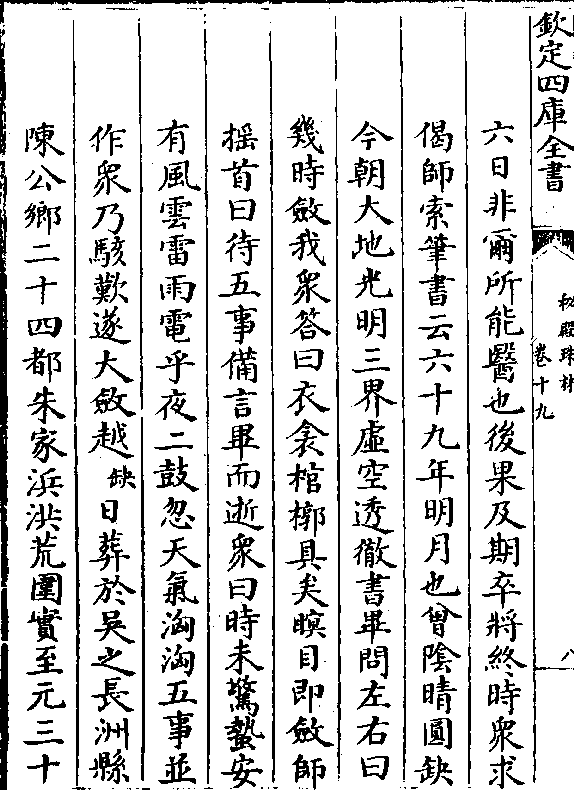 欽定四庫全書
秘殿珠林
卷十九
八
六日非爾所能醫也後果及期卒將終時衆求
偈師索筆書云六十九年明月也曾陰晴圓缺
今朝大地光明三界虛空透徹書畢問左右曰
幾時斂我衆答曰衣衾棺槨具矣瞑目即斂師
搖首曰待五事備言畢而逝衆曰時未驚蟄安
有風雲雷雨電乎夜二鼓忽天氣洶洶五事並
作衆乃駭歎遂大斂越缺日葬於吳之長洲縣
陳公鄉二十四都朱家浜洪荒圍實至元三十